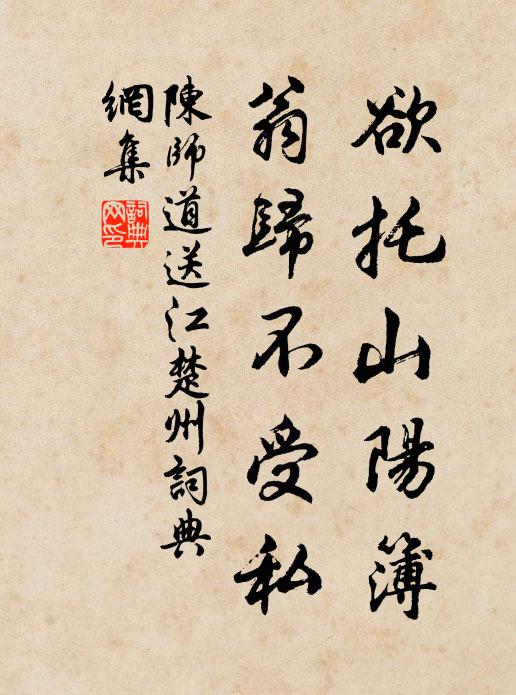 欲托山陽簿
翁歸不受私
陳師道送江楚州詞典
網集
詞典
网印